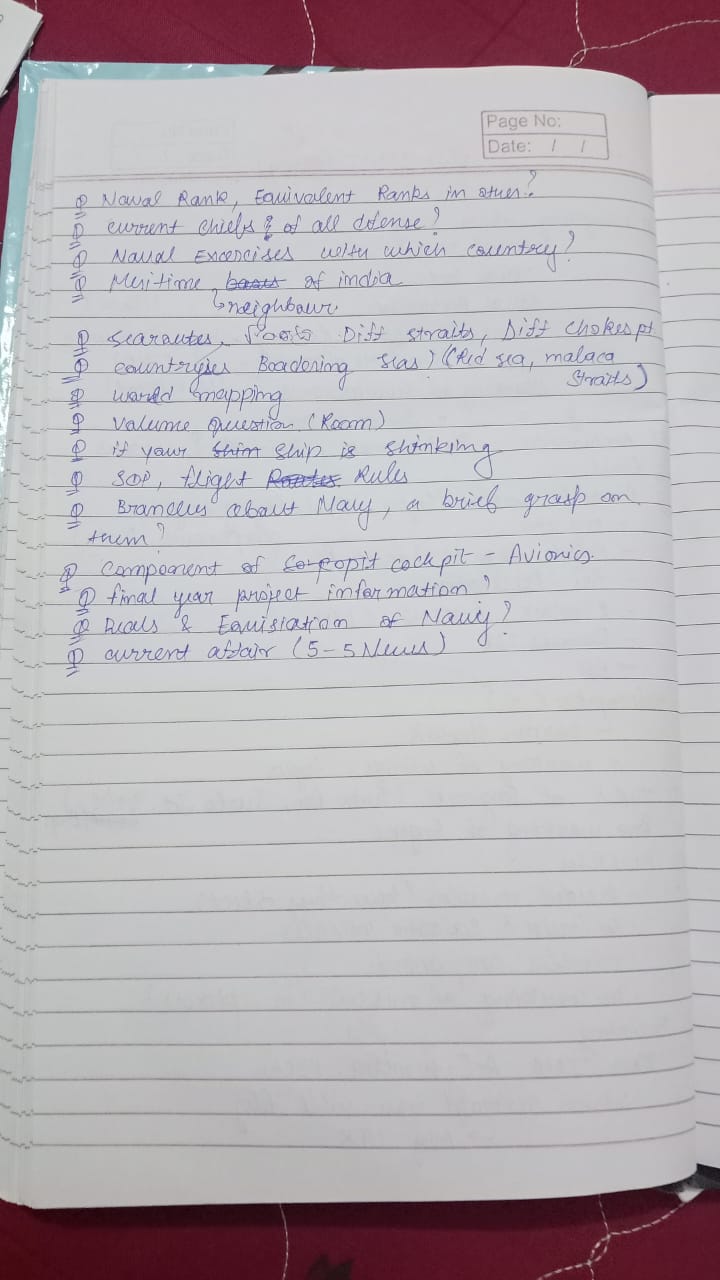 Page No:
Date: / /
Q Naval Rank, Equivalent Ranks in other?
Q current chiefs & of all defense?
Q Naval Excercises with which country?
Q Meritime basis of india
neighbour
Q searoutes, Diff straits, Diff chokes pt
Q countryies Boadering seas) (Red sea, malaca
Straits)
Q world mapping
Q Volume question (Room)
Q if your ship is shinking
Q SOP, flight Routes Rules
Q Branches about Navy, a brief grasp on
them?
Q component of cockpit - Avionics.
Q final year project information?
Q Deals & Equisiation of Navy?
Q current affair (5-5 News)